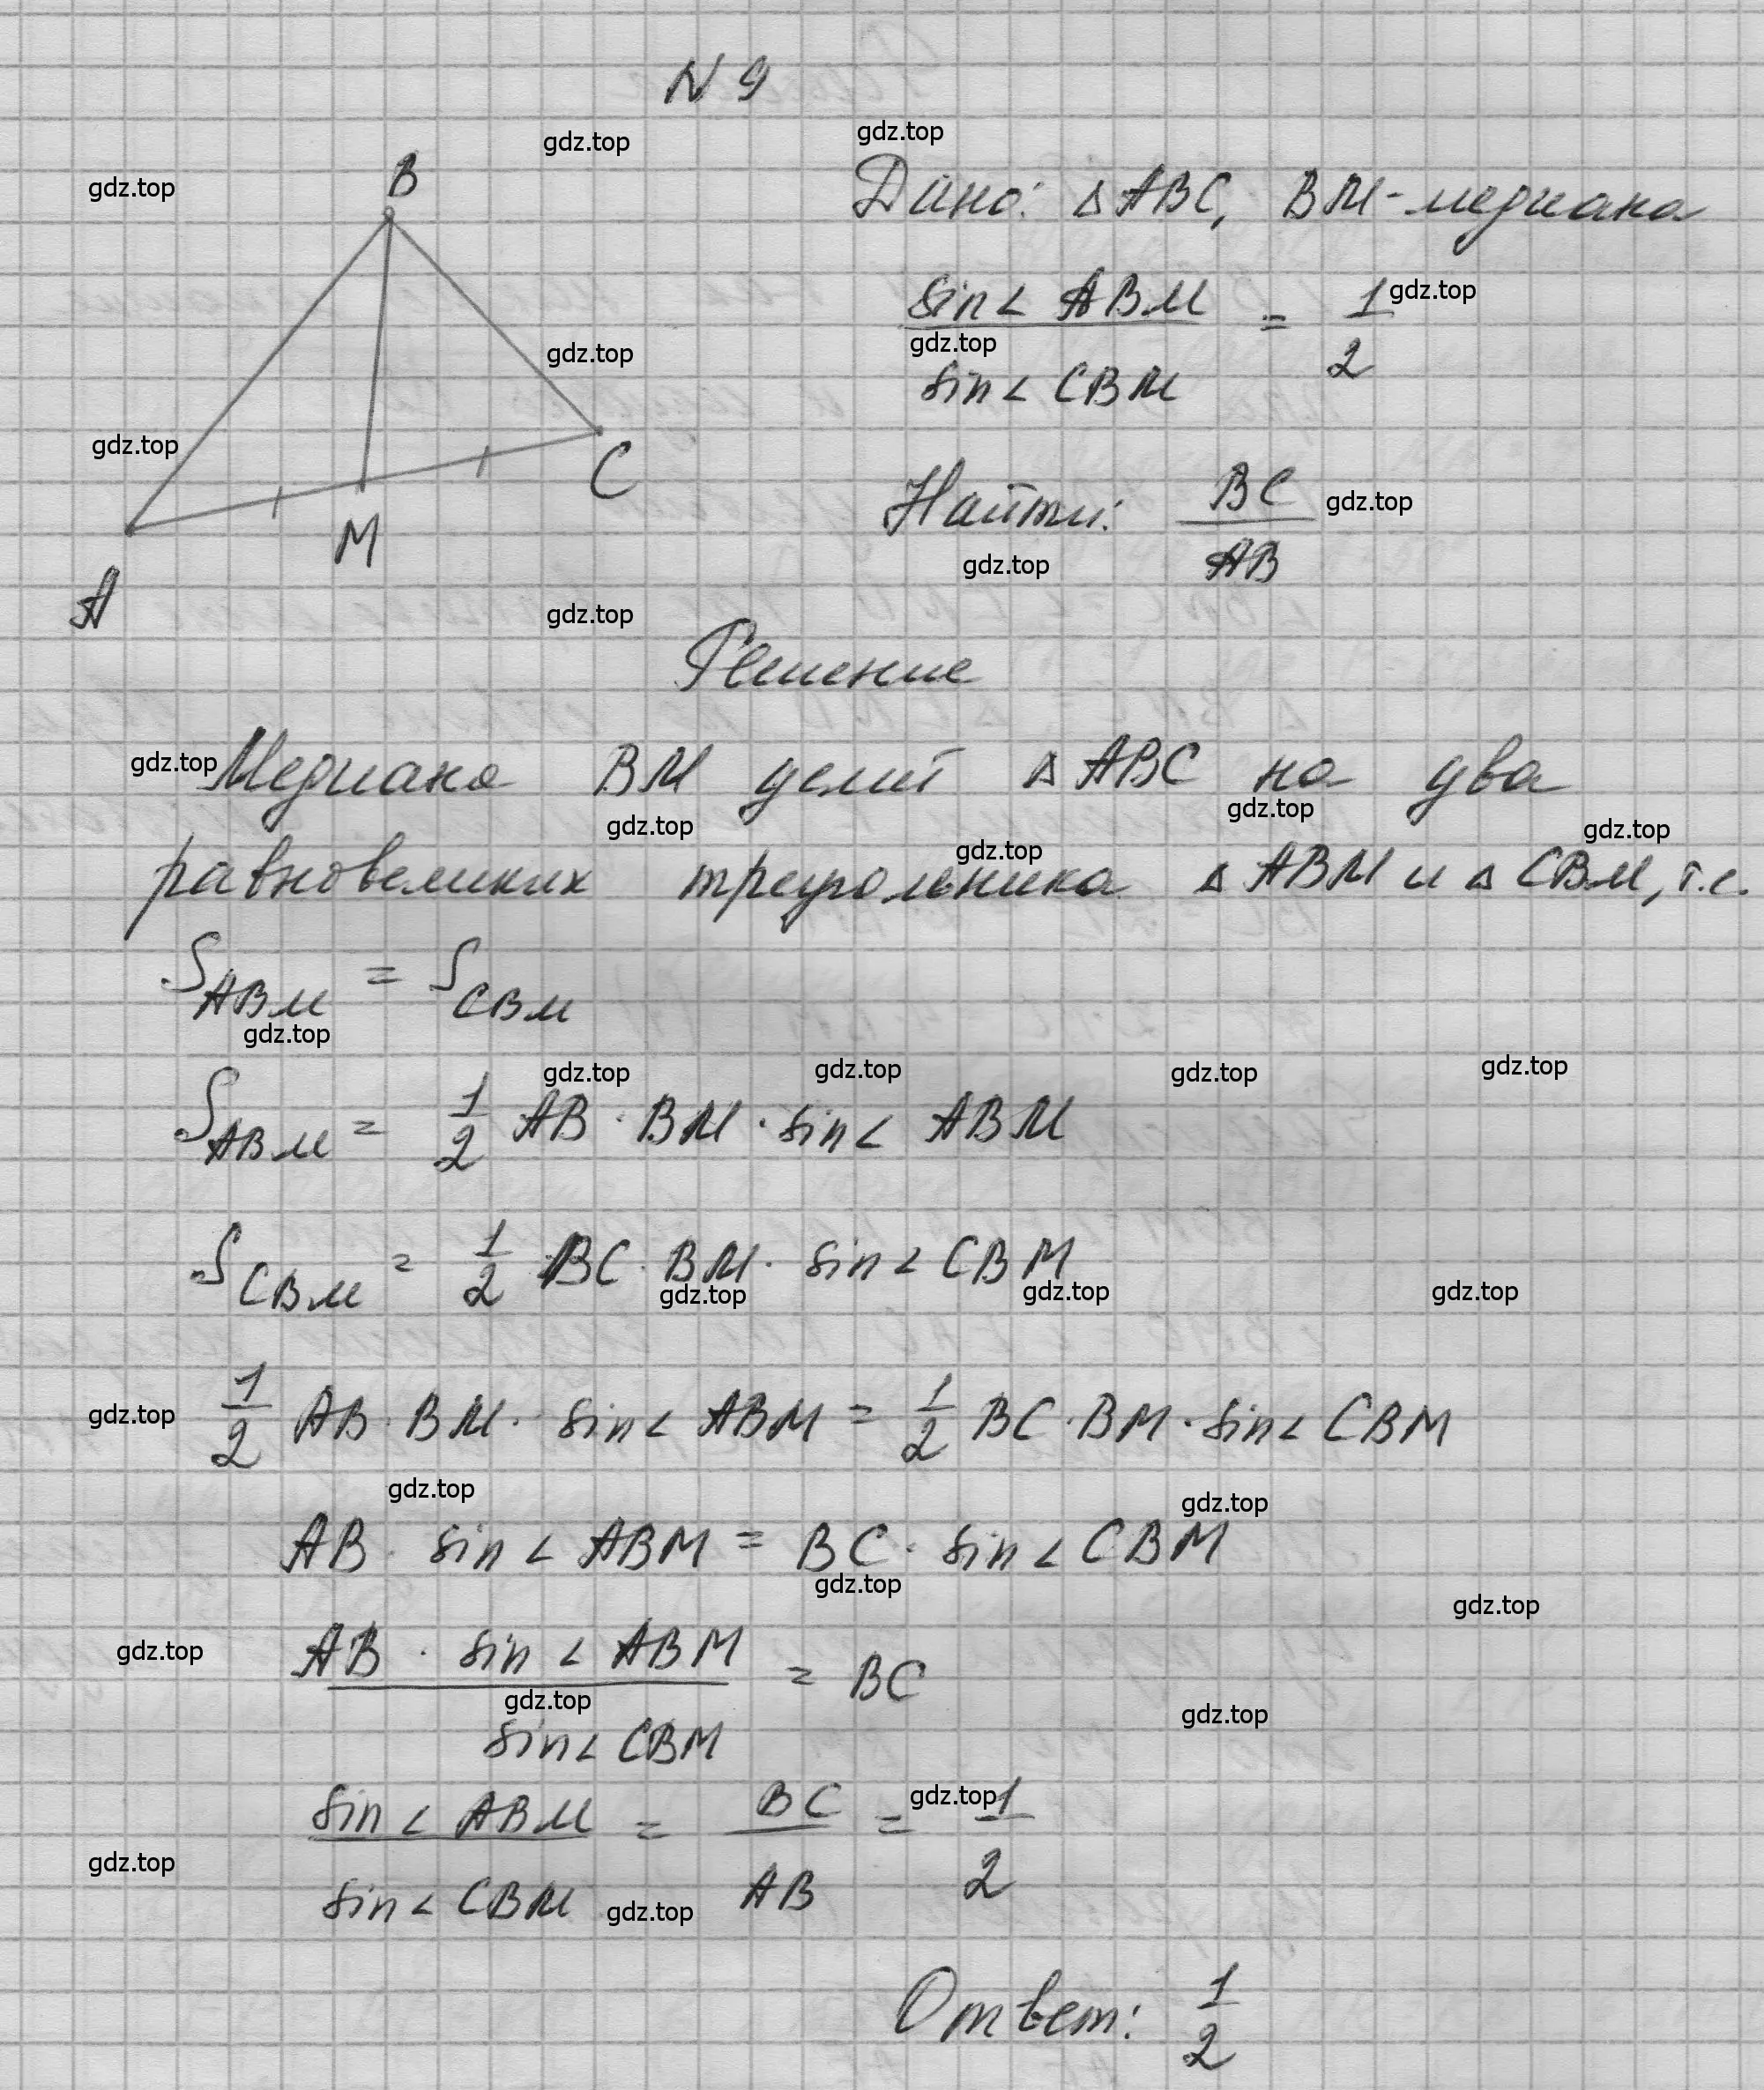 N 9
gdz.top gdz.top
gdz.top
B
Дано: △ ABC, BM - медиана
sin∠ ABM / sin∠ CBM = 1/2
gdz.top
gdz.top
gdz.top
gdz.top
C
M
A
Найти: BC / AB
gdz.top
gdz.top
gdz.top
Решение
gdz.top
Медиана BM делит △ ABC на два
gdz.top gdz.top gdz.top gdz.top
равновеликих треугольника △ ABM и △ CBM, т.е.
S ABM = S CBM
gdz.top
gdz.top gdz.top gdz.top gdz.top
S ABM = 1/2 AB · BM · sin∠ ABM
S CBM = 1/2 BC · BM · sin∠ CBM
gdz.top gdz.top gdz.top
gdz.top
1/2 AB · BM · sin∠ ABM = 1/2 BC · BM · sin∠ CBM
gdz.top gdz.top
AB · sin∠ ABM = BC · sin∠ CBM
gdz.top gdz.top
gdz.top
AB · sin∠ ABM / sin∠ CBM = BC
gdz.top gdz.top
sin∠ ABM / sin∠ CBM = BC / AB = 1/2
gdz.top
gdz.top gdz.top
Ответ: 1/2